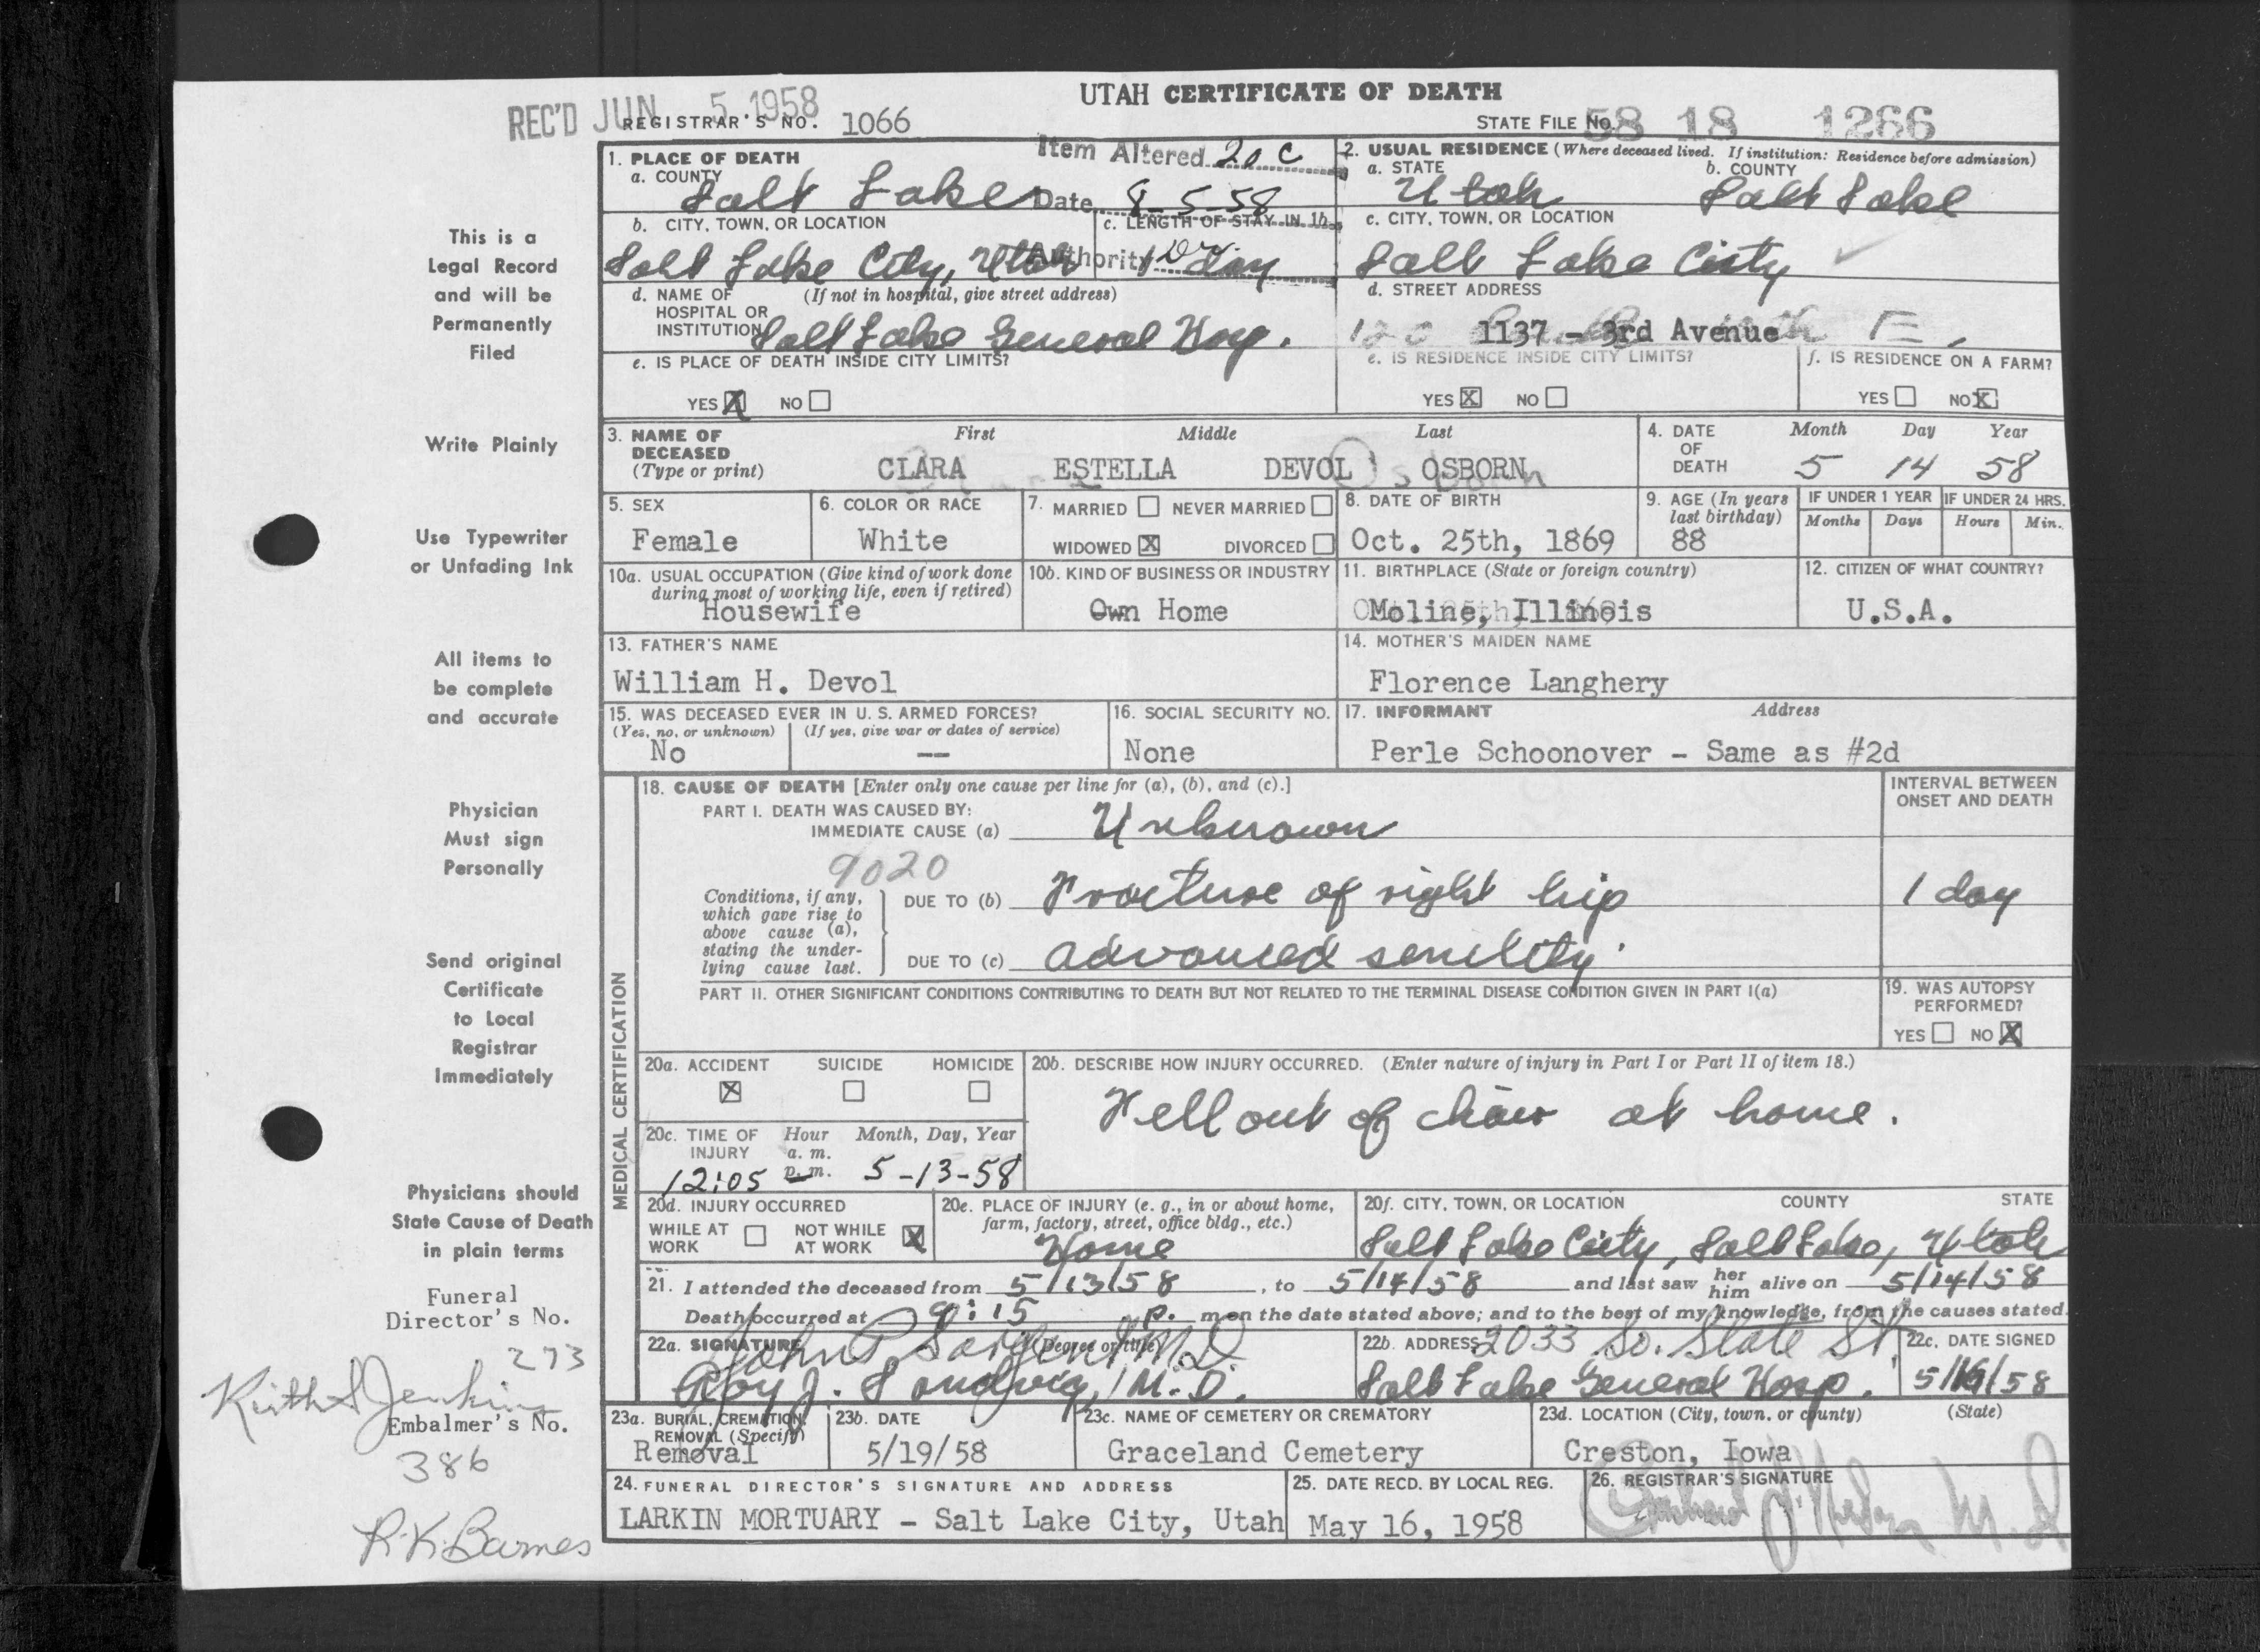 UTAH CERTIFICATE OF DEATH
REC'D JUN 5 1958
REGISTRAR'S NO. 1066
STATE FILE No. 58 18 1266
Item Altered 20 C
Date 8-5-58
Authority
1. PLACE OF DEATH
a. COUNTY
Salt Lake
2. USUAL RESIDENCE (Where deceased lived. If institution: Residence before admission)
a. STATE
Utah
b. COUNTY
Salt Lake
b. CITY, TOWN, OR LOCATION
Salt Lake City, Utah
c. LENGTH OF STAY IN 1b
1 Day
c. CITY, TOWN, OR LOCATION
Salt Lake City
d. NAME OF (If not in hospital, give street address)
HOSPITAL OR
INSTITUTION Salt Lake General Hosp.
d. STREET ADDRESS
1137 - 3rd Avenue
e. IS PLACE OF DEATH INSIDE CITY LIMITS?
YES X NO
e. IS RESIDENCE INSIDE CITY LIMITS?
YES X NO
f. IS RESIDENCE ON A FARM?
YES NO X
3. NAME OF DECEASED (Type or print)
First Middle Last
CLARA ESTELLA DEVOL OSBORN
4. DATE OF DEATH
Month Day Year
5 14 58
5. SEX
Female
6. COLOR OR RACE
White
7. MARRIED NEVER MARRIED
WIDOWED X DIVORCED
8. DATE OF BIRTH
Oct. 25th, 1869
9. AGE (In years last birthday)
88
IF UNDER 1 YEAR
Months Days
IF UNDER 24 HRS.
Hours Min.
10a. USUAL OCCUPATION (Give kind of work done during most of working life, even if retired)
Housewife
10b. KIND OF BUSINESS OR INDUSTRY
Own Home
11. BIRTHPLACE (State or foreign country)
Moline, Illinois
12. CITIZEN OF WHAT COUNTRY?
U.S.A.
13. FATHER'S NAME
William H. Devol
14. MOTHER'S MAIDEN NAME
Florence Langhery
15. WAS DECEASED EVER IN U. S. ARMED FORCES?
(Yes, no, or unknown) (If yes, give war or dates of service)
No --
16. SOCIAL SECURITY NO.
None
17. INFORMANT Address
Perle Schoonover - Same as #2d
MEDICAL CERTIFICATION
18. CAUSE OF DEATH [Enter only one cause per line for (a), (b), and (c).]
INTERVAL BETWEEN ONSET AND DEATH
PART I. DEATH WAS CAUSED BY:
IMMEDIATE CAUSE (a) Unknown
9020
Conditions, if any, which gave rise to above cause (a), stating the underlying cause last.
DUE TO (b) Fracture of right hip 1 day
DUE TO (c) advanced senility
PART II. OTHER SIGNIFICANT CONDITIONS CONTRIBUTING TO DEATH BUT NOT RELATED TO THE TERMINAL DISEASE CONDITION GIVEN IN PART I(a)
19. WAS AUTOPSY PERFORMED?
YES NO X
20a. ACCIDENT SUICIDE HOMICIDE
X
20b. DESCRIBE HOW INJURY OCCURRED. (Enter nature of injury in Part I or Part II of item 18.)
Fell out of chair at home.
20c. TIME OF INJURY Hour Month, Day, Year
a. m.
p. m.
12:05 5-13-58
20d. INJURY OCCURRED
WHILE AT WORK NOT WHILE AT WORK X
20e. PLACE OF INJURY (e. g., in or about home, farm, factory, street, office bldg., etc.)
Home
20f. CITY, TOWN, OR LOCATION COUNTY STATE
Salt Lake City, Salt Lake, Utah
21. I attended the deceased from 5/13/58, to 5/14/58 and last saw her him alive on 5/14/58
Death occurred at 9:15 p. m on the date stated above; and to the best of my knowledge, from the causes stated.
22a. SIGNATURE (Degree or title)
John P Sargent M D
Roy J. Sandvig, M.D.
22b. ADDRESS 2033 So. State St
Salt Lake General Hosp.
22c. DATE SIGNED
5/16/58
23a. BURIAL, CREMATION, REMOVAL (Specify)
Removal
23b. DATE
5/19/58
23c. NAME OF CEMETERY OR CREMATORY
Graceland Cemetery
23d. LOCATION (City, town, or county) (State)
Creston, Iowa
24. FUNERAL DIRECTOR'S SIGNATURE AND ADDRESS
LARKIN MORTUARY - Salt Lake City, Utah
25. DATE RECD. BY LOCAL REG.
May 16, 1958
26. REGISTRAR'S SIGNATURE
M.D
This is a
Legal Record
and will be
Permanently
Filed
Write Plainly
Use Typewriter
or Unfading Ink
All items to
be complete
and accurate
Physician
Must sign
Personally
Send original
Certificate
to Local
Registrar
Immediately
Physicians should
State Cause of Death
in plain terms
Funeral
Director's No.
273
Keith S Jenkins
Embalmer's No.
386
R.K. Barnes